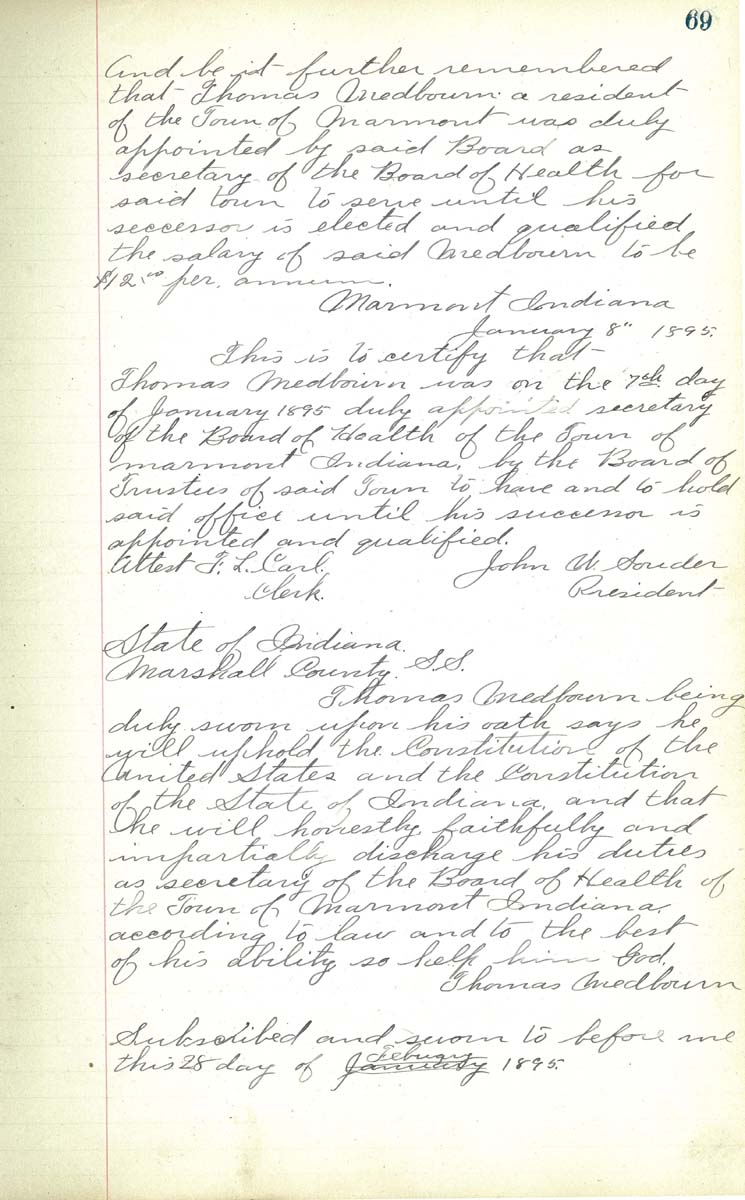 69
And be it further remembered
that Thomas Medbourn a resident
of the Town of Marmont was duly
appointed by said Board as
secretary of the Board of Health for
said town to serve until his
seccessor is elected and qualified
the salary of said Medbourn to be
$12.00 per annum.
Marmont Indiana
January 8" 1895.
This is to certify that
Thomas Medbourn was on the 7th day
of January 1895 duly appointed secretary
of the Board of Health of the Town of
marmont Indiana, by the Board of
Trustees of said Town to have and to hold
said office until his successor is
appointed and qualified.
Attest F. L. Carl. John W. Souder
Clerk. President
State of Indiana.
Marshall County. S.S.
Thomas Medbourn being
duly sworn upon his oath says he
will uphold the Constitution of the
United States and the Constitution
of the State of Indiana, and that
he will honestly, faithfully and
impartially discharge his duties
as secretary of the Board of Health of
the Town of Marmont Indiana.
according to law and to the best
of his ability so help him God.
Thomas Medbourn
Subscribed and sworn to before me
Febuary
this 28 day of January 1895.